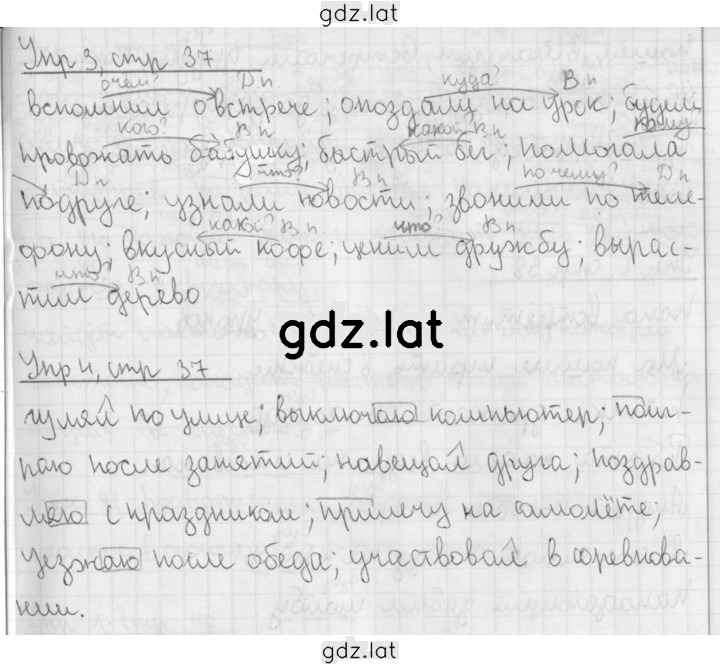 gdz.lat
Упр 3, стр 37
о чём? Д п куда? В п
вспомнил о встрече; опоздали на урок; будем
кого? В п какой? В п кому
провожать бабушку; быстрый бег; помогала
Д п что? В п по чему? Д п
подруге; узнали новости; звонили по теле-
какой? В п что? В п
фону; вкусный кофе; ценим дружбу; вырас-
что? В п
тил дерево
gdz.lat
Упр 4, стр 37
гулял по улице; выключаю компьютер; поиг-
раю после занятий; навещал друга; поздрав-
ляю с праздником; прилечу на самолёте;
уезжаю после обеда; участвовал в соревнова-
нии.
gdz.lat